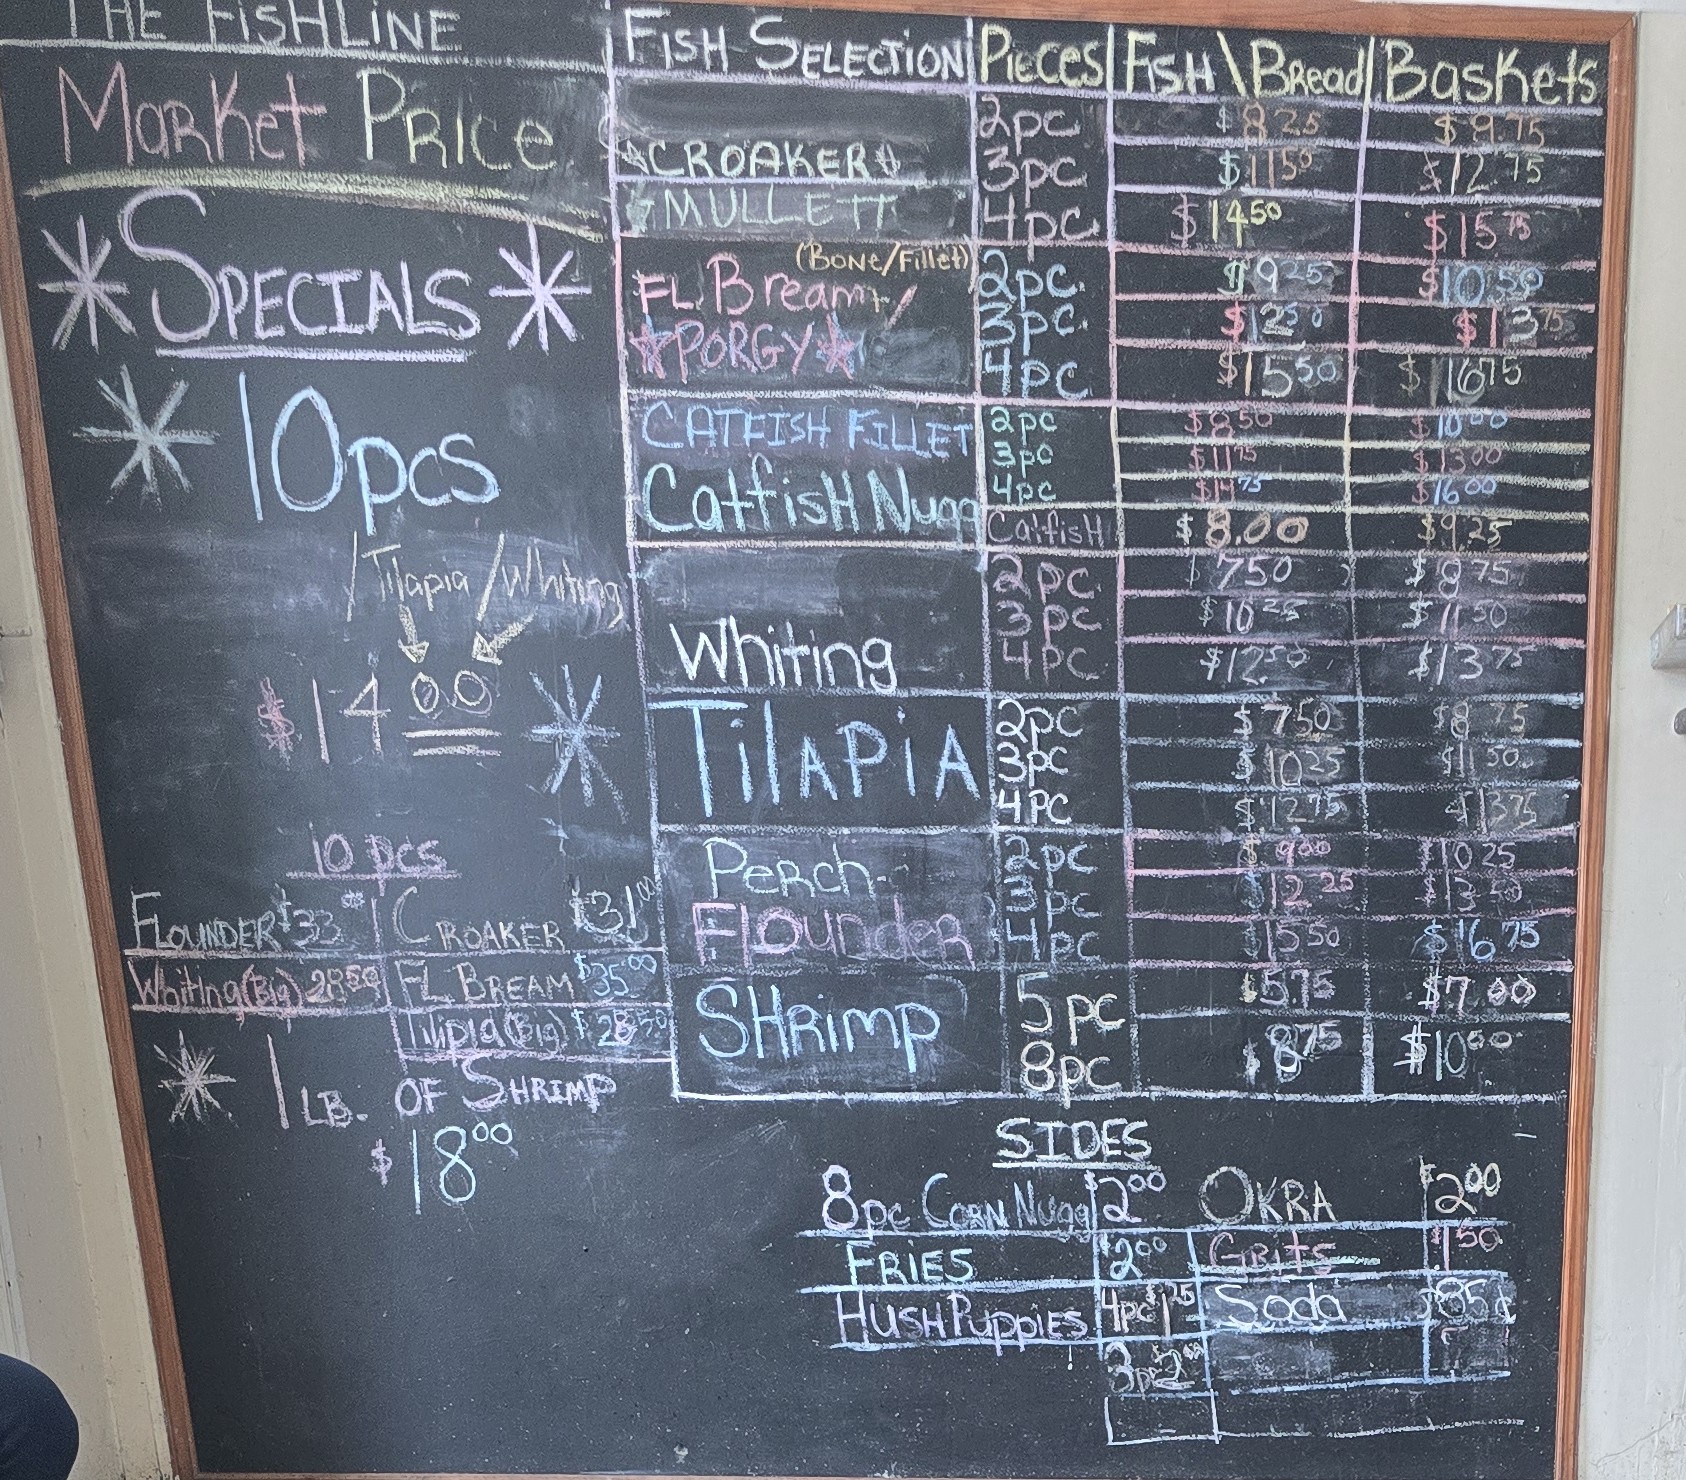 THE FISHLINE
Market Price
SPECIALS
10pcs
/Tilapia/Whiting
$14.00
10 pcs
FLOUNDER $33.00 CROAKER $31.00
Whiting(Big) 28.50 FL BREAM $35.00
Tilipia(Big) $28.50
1 LB. OF SHRIMP
$18.00
FISH SELECTION PIECES FISH \ BREAD BASKETS
2pc $8.25 $9.75
CROAKER 3pc $11.50 $12.75
MULLETT 4pc $14.50 $15.75
(BONE/Fillet) 2pc. $9.25 $10.50
FL. Bream 3pc. $12.50 $13.75
PORGY 4pc $15.50 $16.75
CATFISH FILLET 2pc $8.50 $10.00
3pc $11.75 $13.00
CatfisH Nugg 4pc $14.75 $16.00
CatfisH $8.00 $9.25
2pc $7.50 $8.75
3pc $10.25 $11.50
Whiting 4pc $12.50 $13.75
TilAPiA 2pc $7.50 $8.75
3pc $10.25 $11.50
4PC $12.75 $13.75
Perch 2pc $9.00 $10.25
3pc $12.25 $13.50
Flounder 4pc $15.50 $16.75
SHrimp 5pc $5.75 $7.00
8pc $8.75 $10.00
SIDES
8pc CORN Nugg $2.00 OKRA $2.00
FRIES $2.00 GRitS $1.50
HUSH Puppies 4pc 1.25 Soda 85¢
3pc $2.00